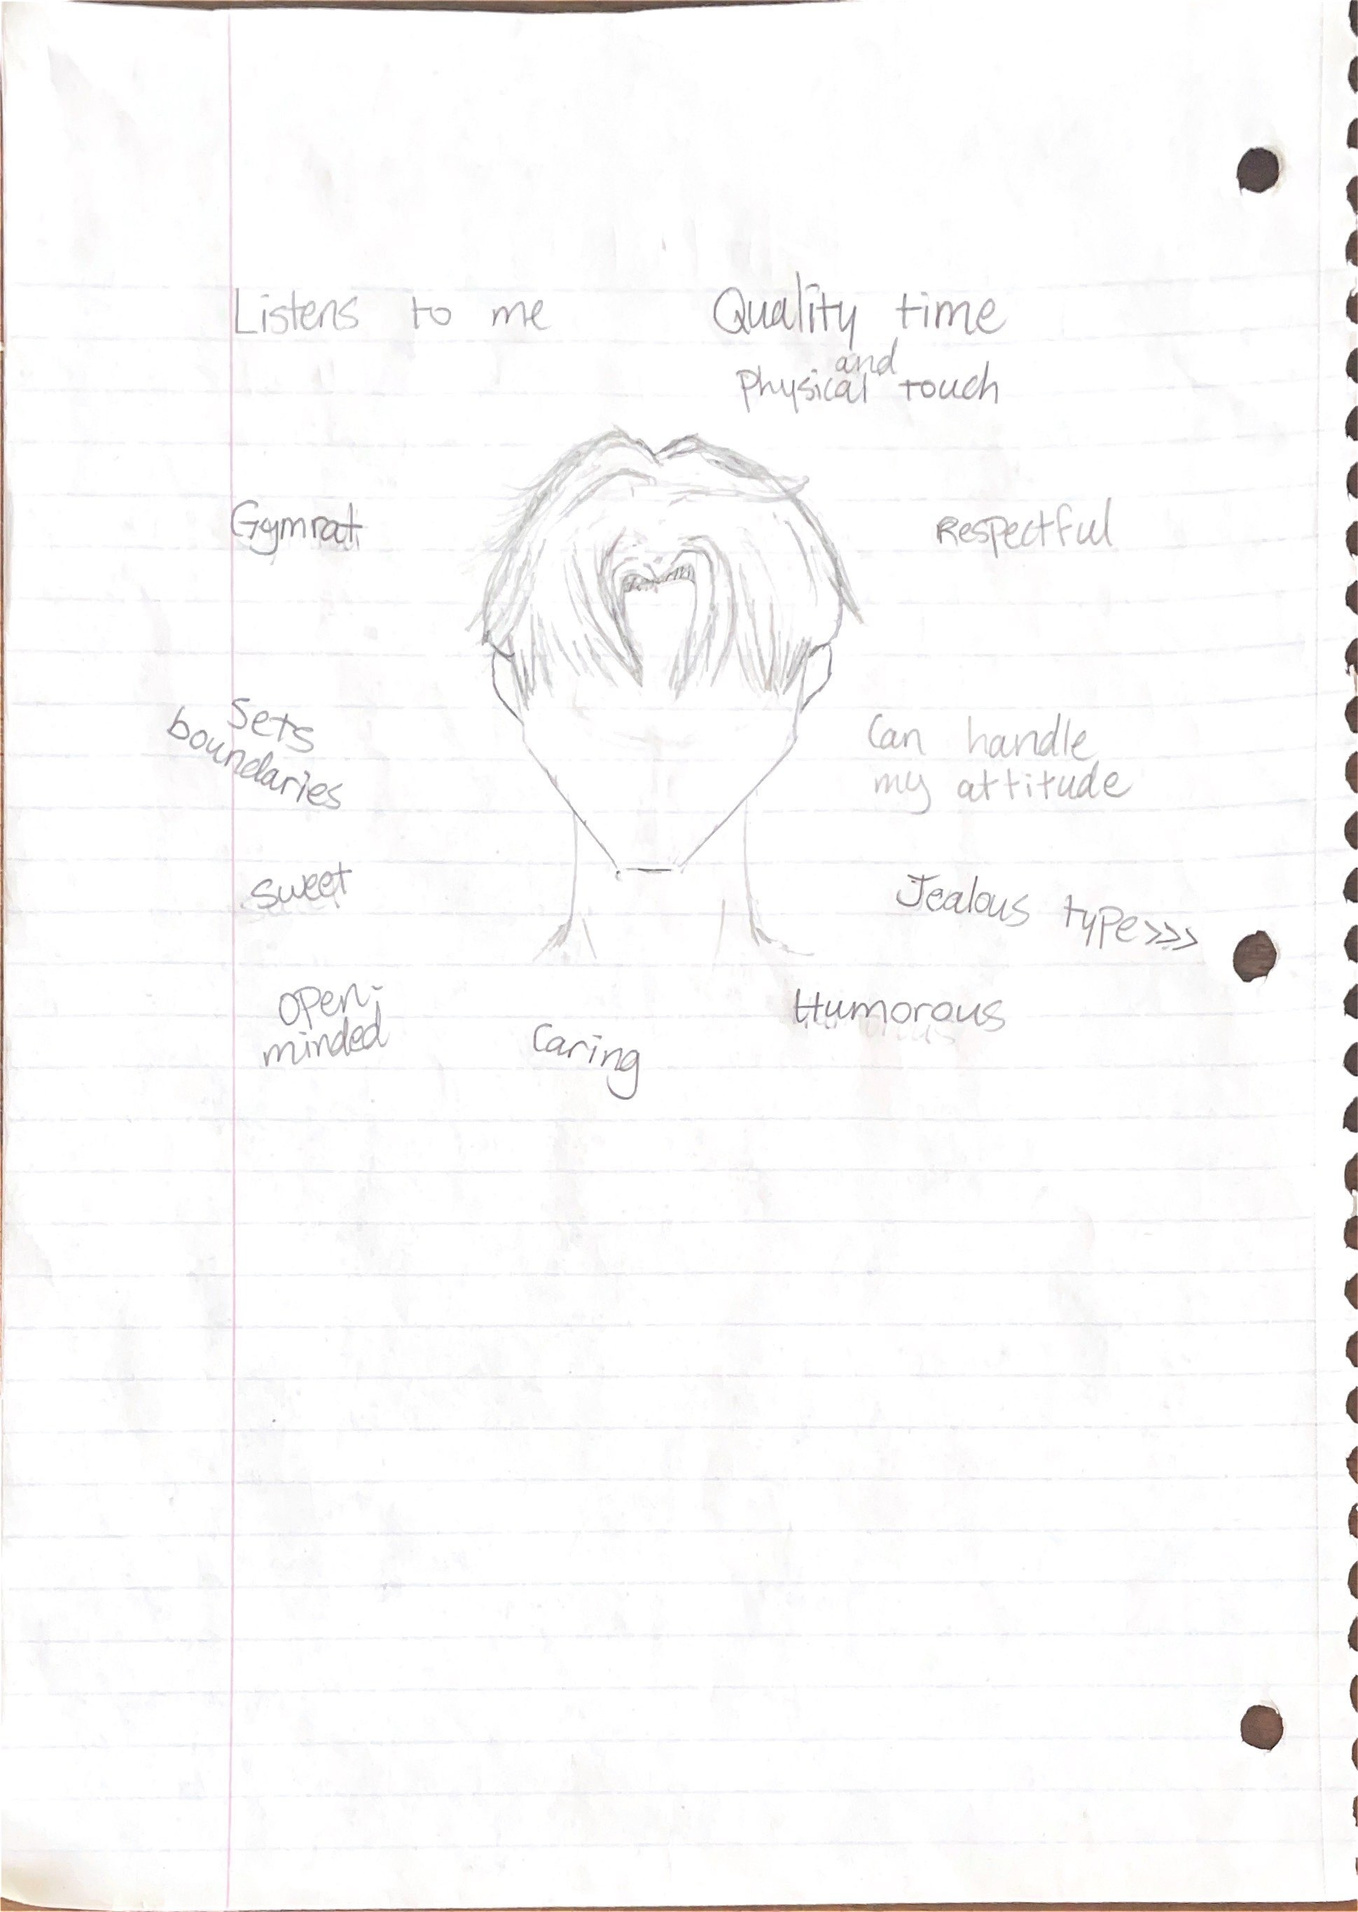 Listens to me
Quality time
and
Physical touch
Gymrat
Respectful
Sets
boundaries
Can handle
my attitude
Sweet
Jealous type>>>
Open-
minded
Caring
Humorous